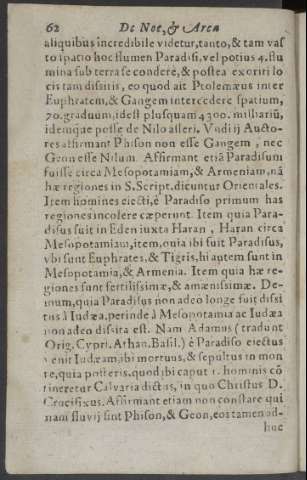 62 De Noe, & Arca
aliquibus incredibile videtur, tanto, & tam vas
to spatio hoc flumen Paradisi, vel potius 4. flu
mina sub terra se condere, & postea exoriri lo
cis tam dissitis, eo quod ait Ptolemæus inter
Euphratem, & Gangem intercedere spatium,
70. graduum, idest plusquam 4300. milliariū,
idemque posse de Nilo asseri. Vndi ij Aucto-
res affirmant Phison non esse Gangem, nec
Geon esse Nilum. Affirmant etiā Paradisum
fuisse circa Mesopotamiam, & Armeniam, nā
hæ regiones in S. Script. dicuntur Orientales.
Item homines eiecti, é Paradiso primum has
regiones incolere cæperunt. Item quia Para-
disus fuit in Eden iuxta Haran, Haran circa
Mesopotamiam, item, quia ibi fuit Paradisus,
vbi sunt Euphrates, & Tigris, hi autem sunt in
Mesopotamia, & Armenia. Item quia hæ re-
giones sunt fertilissimæ, & amænissimæ. De-
mum, quia Paradisus non adeo longe fuit dissi
tus à Iudæa, perinde à Mesopotamia ac Iudæa
non adeo dissita est. Nam Adamus (tradunt
Orig. Cypri. Athan. Basil.) è Paradiso eiectus
venit Iudæam, ibi mortuus, & sepultus in mon
te, quia posteris, quod ibi caput 1. hominis cō
tineretur Calvaria dictus, in quo Christus D.
Crucifixus. Affirmant etiam non constare qui
nam fluvij sint Phison, & Geon, eos tamen ad-
huc